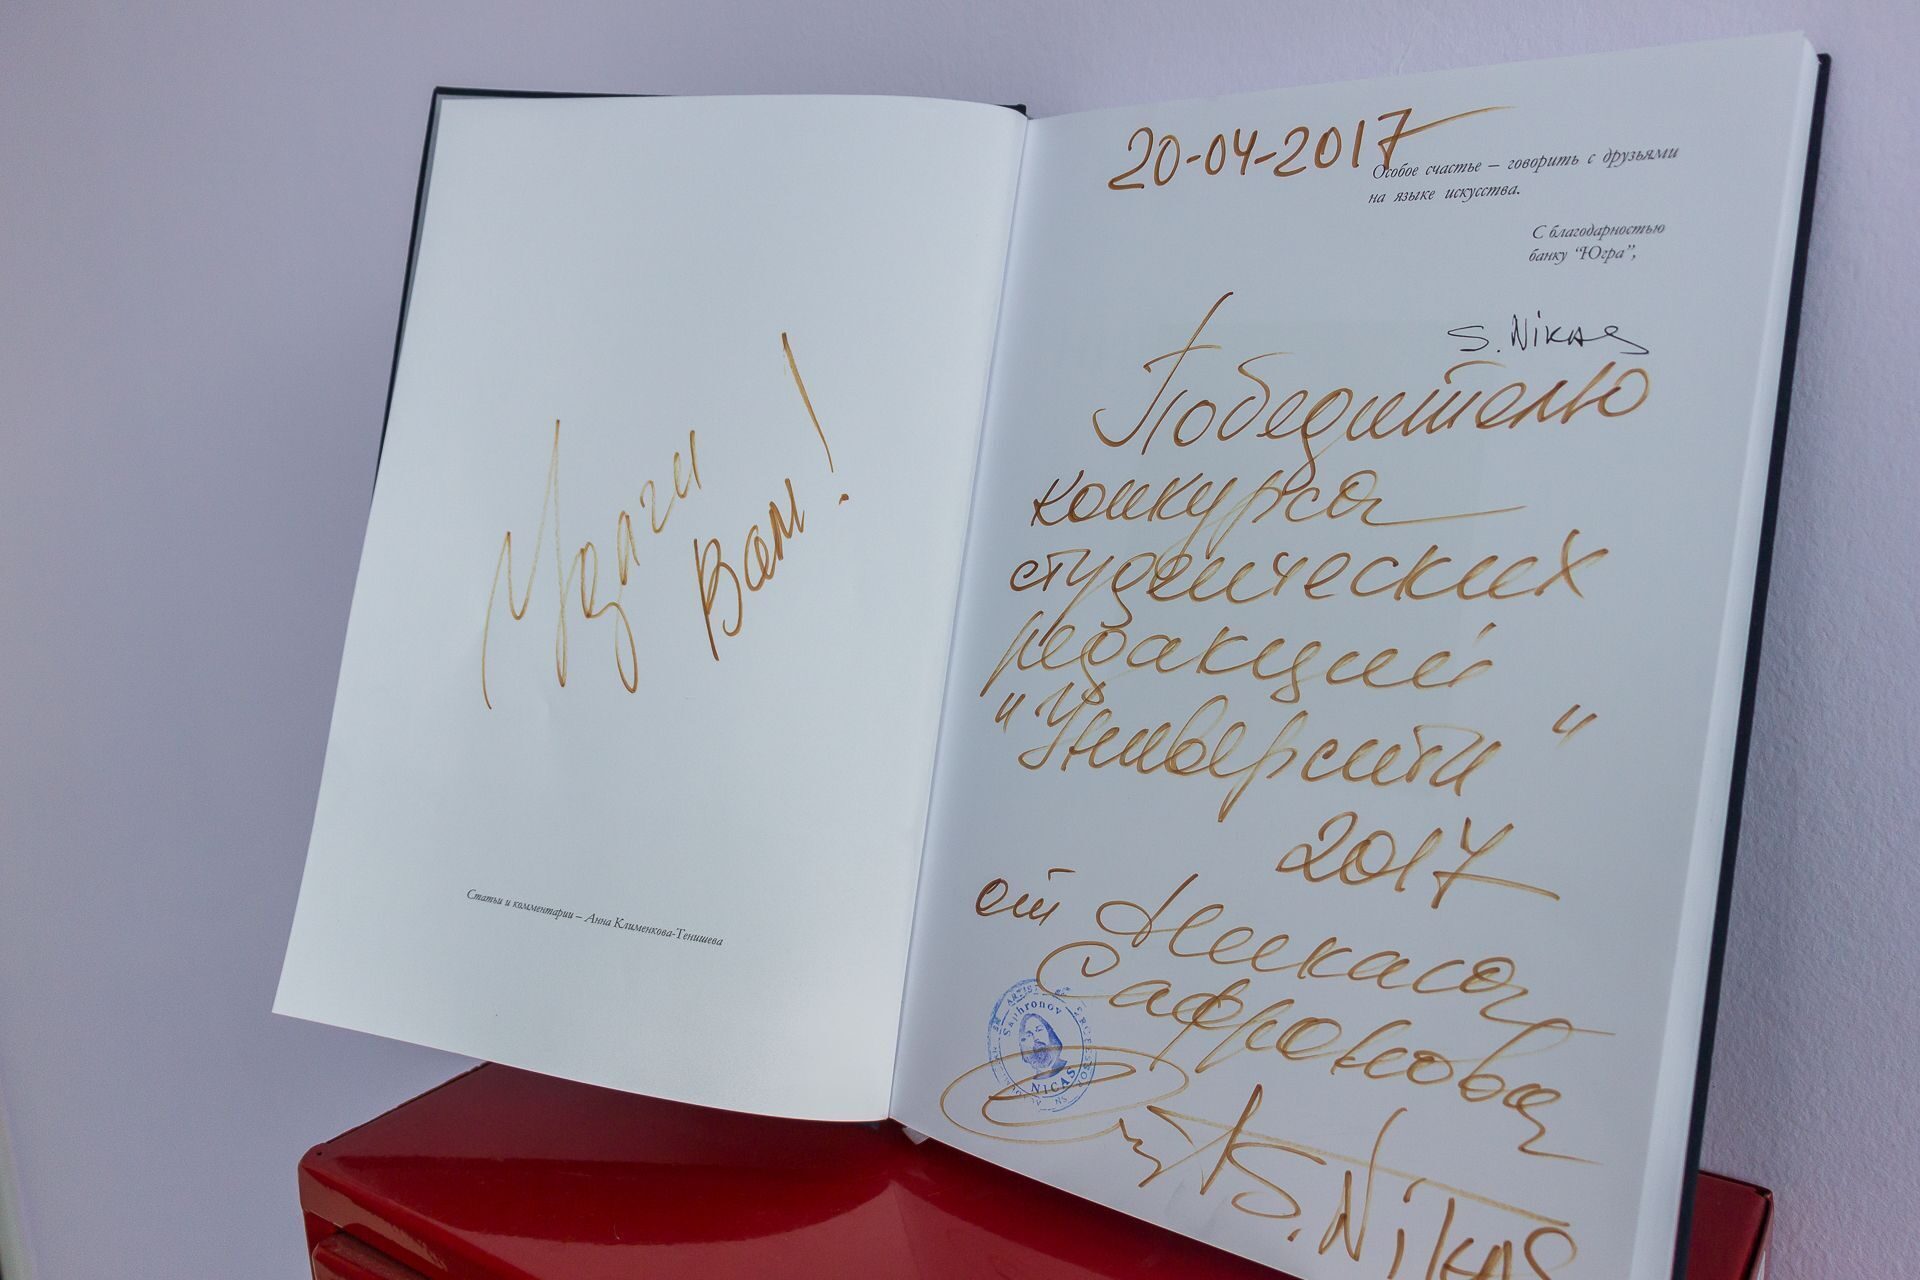 Удачи
Вам!
Статьи и комментарии – Анна Клименкова-Тенишева
20-04-2017
Особое счастье – говорить с друзьями
на языке искусства.
С благодарностью
банку “Югра”,
S. Nikas
Победителю
конкурса
студенческих
редакций
"Университи"
2017
от Никаса
Сафронова
Saphronov
NICAS
S. Nikas